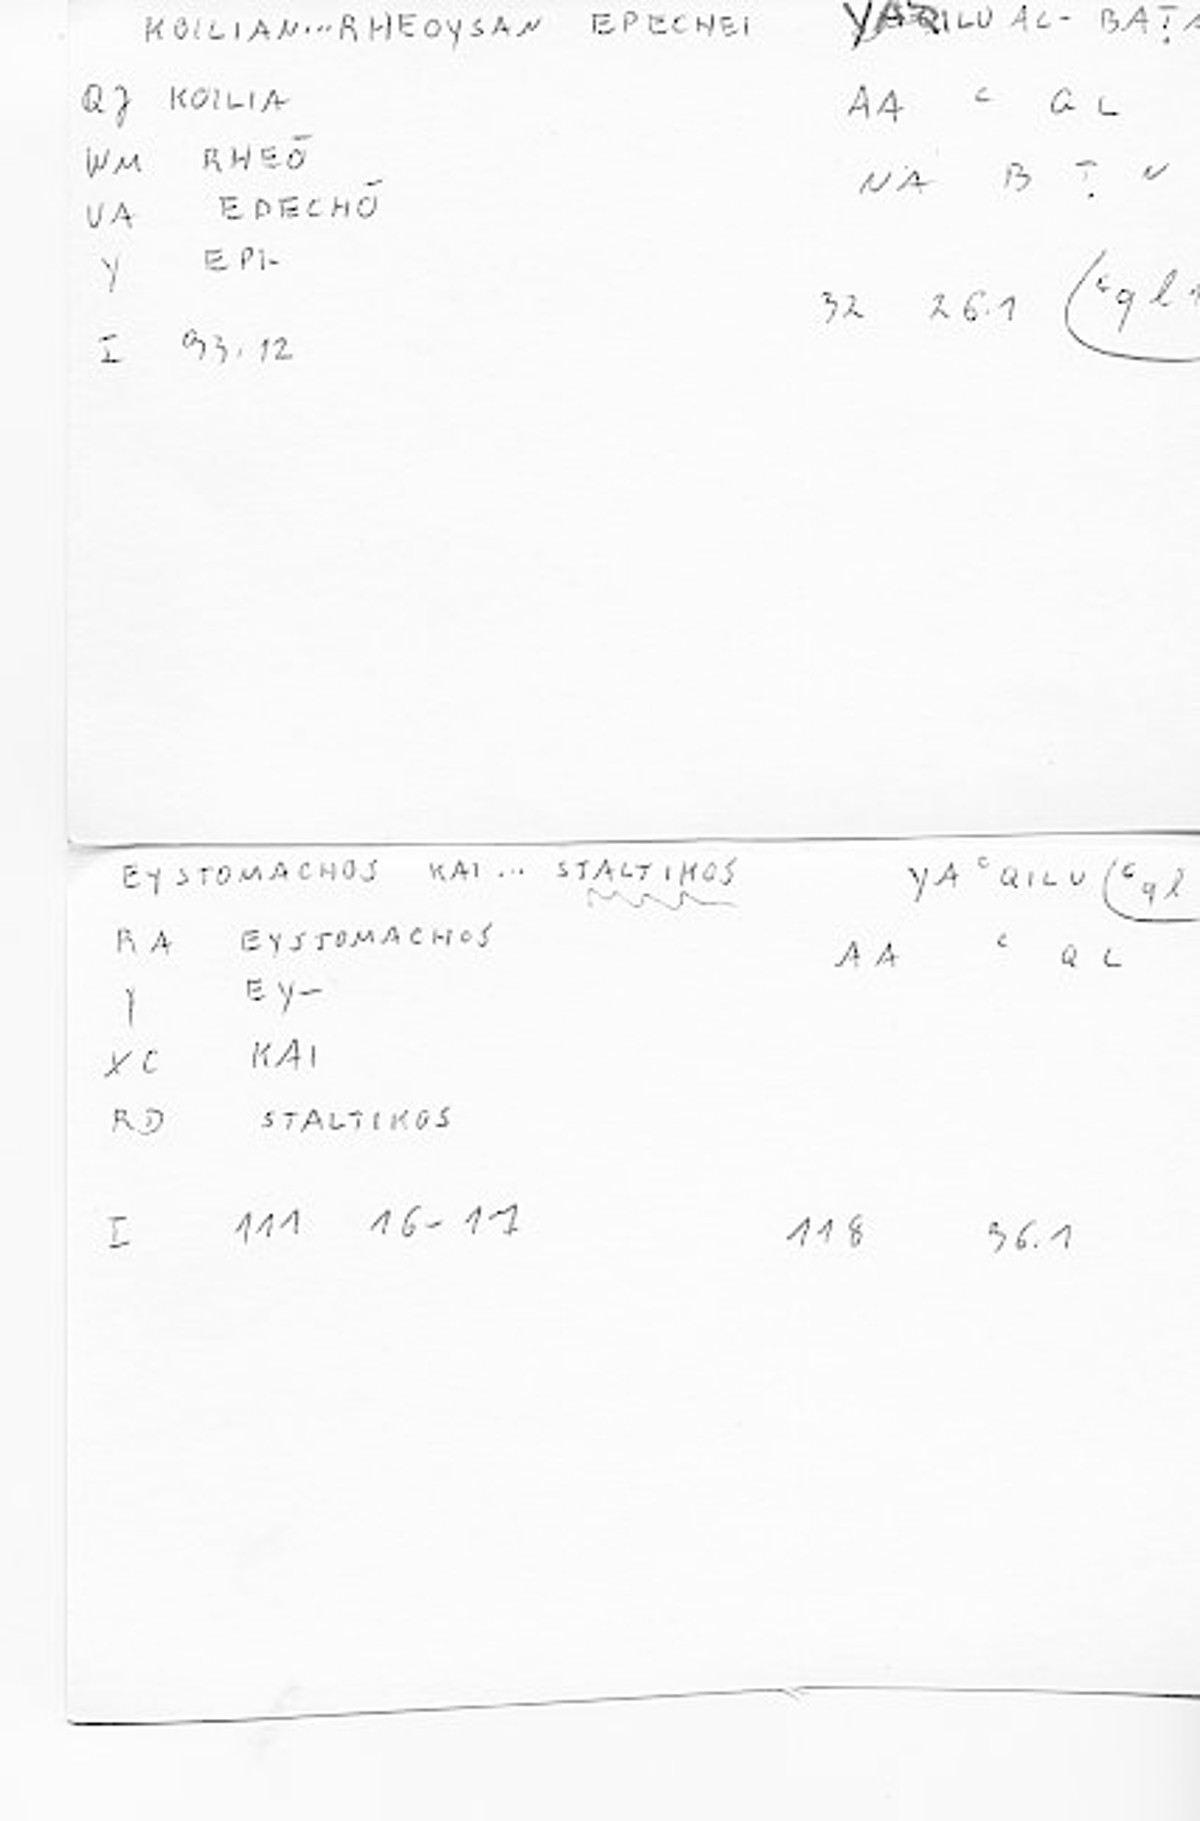 KOILIAN...RHEOYSAN EPECHEI YAQILU AL-BAṬ
QJ KOILIA AA ʿ Q L
WM RHEŌ NA B Ṭ N
UA EPECHŌ
Y EPI-
32 26.1 (ʿql
I 93.12
EYSTOMACHOS KAI... STALTIKOS YAʿQILU (ʿql
RA EYSTOMACHOS AA ʿ Q L
Y EY-
XC KAI
RD STALTIKOS
I 111 16-17 118 36.1